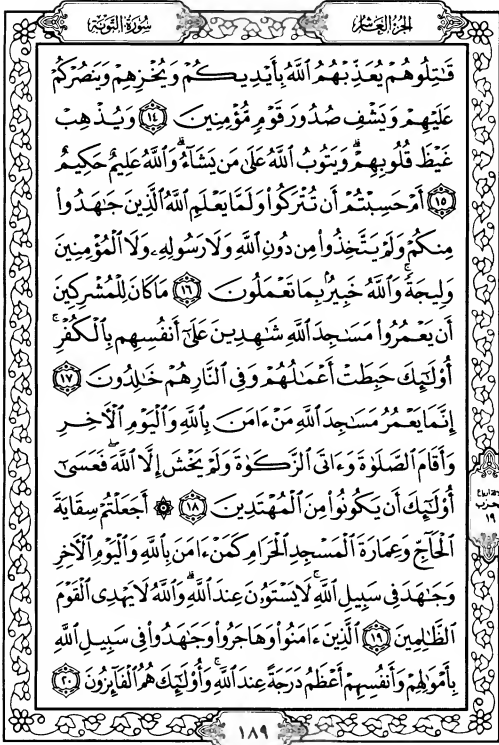 الجزء العاشر
سورة التوبة
قَـٰتِلُوهُمْ يُعَذِّبْهُمُ ٱللَّهُ بِأَيْدِيكُمْ وَيُخْزِهِمْ وَيَنصُرْكُمْ
عَلَيْهِمْ وَيَشْفِ صُدُورَ قَوْمٍ مُّؤْمِنِينَ ١٤ وَيُذْهِبْ
غَيْظَ قُلُوبِهِمْ ۗ وَيَتُوبُ ٱللَّهُ عَلَىٰ مَن يَشَآءُ ۗ وَٱللَّهُ عَلِيمٌ حَكِيمٌ
١٥ أَمْ حَسِبْتُمْ أَن تُتْرَكُوا۟ وَلَمَّا يَعْلَمِ ٱللَّهُ ٱلَّذِينَ جَـٰهَدُوا۟
مِنكُمْ وَلَمْ يَتَّخِذُوا۟ مِن دُونِ ٱللَّهِ وَلَا رَسُولِهِۦ وَلَا ٱلْمُؤْمِنِينَ
وَلِيجَةً ۚ وَٱللَّهُ خَبِيرٌۢ بِمَا تَعْمَلُونَ ١٦ مَا كَانَ لِلْمُشْرِكِينَ
أَن يَعْمُرُوا۟ مَسَـٰجِدَ ٱللَّهِ شَـٰهِدِينَ عَلَىٰٓ أَنفُسِهِم بِٱلْكُفْرِ ۚ
أُو۟لَـٰٓئِكَ حَبِطَتْ أَعْمَـٰلُهُمْ وَفِى ٱلنَّارِ هُمْ خَـٰلِدُونَ ١٧
إِنَّمَا يَعْمُرُ مَسَـٰجِدَ ٱللَّهِ مَنْ ءَامَنَ بِٱللَّهِ وَٱلْيَوْمِ ٱلْـَٔاخِرِ
وَأَقَامَ ٱلصَّلَوٰةَ وَءَاتَى ٱلزَّكَوٰةَ وَلَمْ يَخْشَ إِلَّا ٱللَّهَ ۖ فَعَسَىٰٓ
أُو۟لَـٰٓئِكَ أَن يَكُونُوا۟ مِنَ ٱلْمُهْتَدِينَ ١٨ ۞ أَجَعَلْتُمْ سِقَايَةَ
ٱلْحَآجِّ وَعِمَارَةَ ٱلْمَسْجِدِ ٱلْحَرَامِ كَمَنْ ءَامَنَ بِٱللَّهِ وَٱلْيَوْمِ ٱلْـَٔاخِرِ
وَجَـٰهَدَ فِى سَبِيلِ ٱللَّهِ ۚ لَا يَسْتَوُۥنَ عِندَ ٱللَّهِ ۗ وَٱللَّهُ لَا يَهْدِى ٱلْقَوْمَ
ٱلظَّـٰلِمِينَ ١٩ ٱلَّذِينَ ءَامَنُوا۟ وَهَاجَرُوا۟ وَجَـٰهَدُوا۟ فِى سَبِيلِ ٱللَّهِ
بِأَمْوَٰلِهِمْ وَأَنفُسِهِمْ أَعْظَمُ دَرَجَةً عِندَ ٱللَّهِ ۚ وَأُو۟لَـٰٓئِكَ هُمُ ٱلْفَآئِزُونَ ٢٠
الحزب
١٩
١٨٩